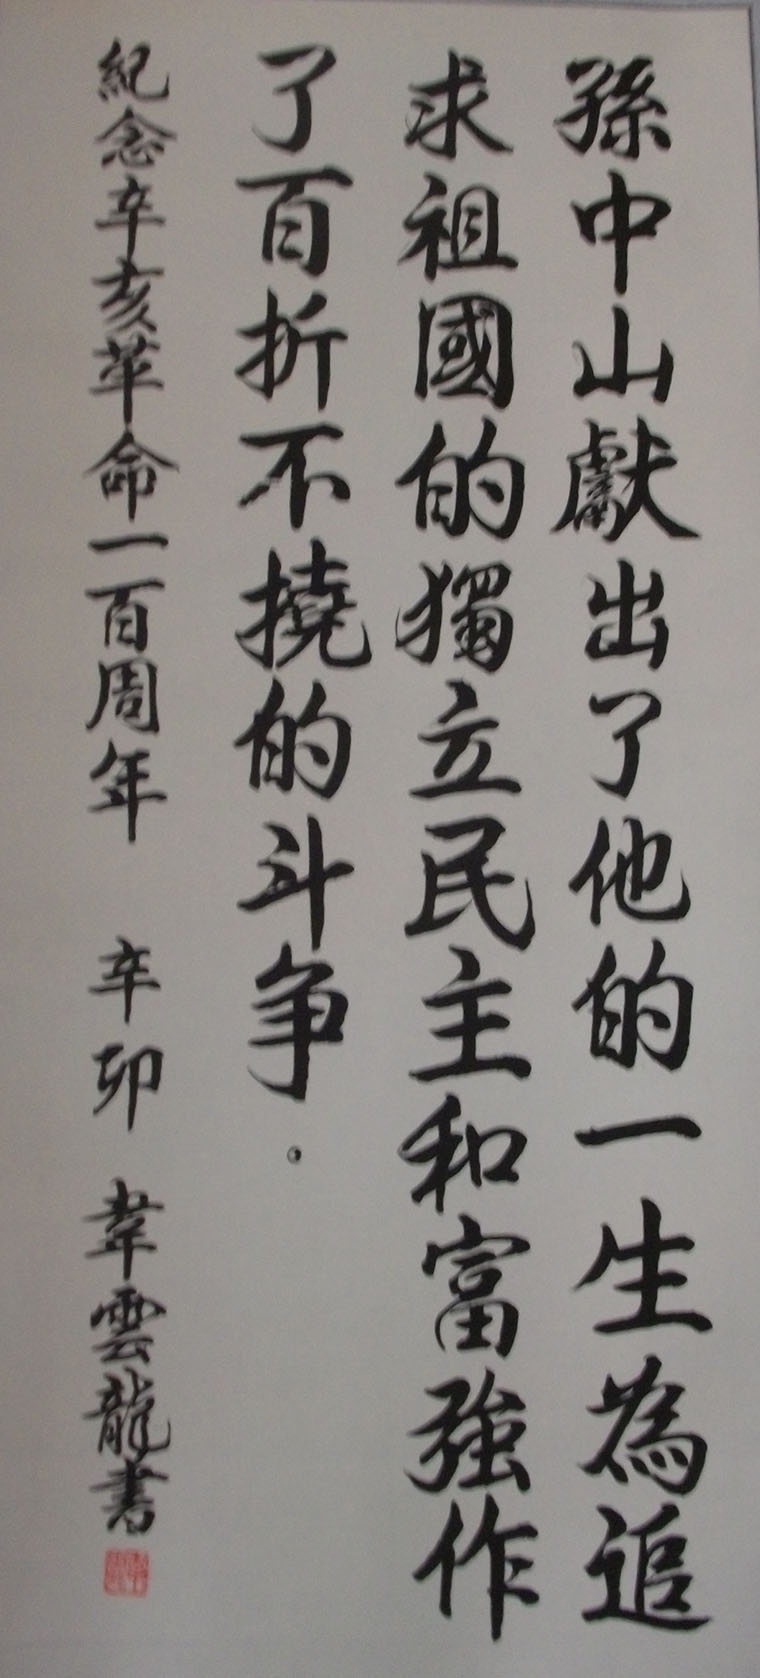 孫中山獻出了他的一生為追
求祖國的獨立民主和富強作
了百折不撓的斗争。
紀念辛亥革命一百周年 辛卯 韋雲龍書